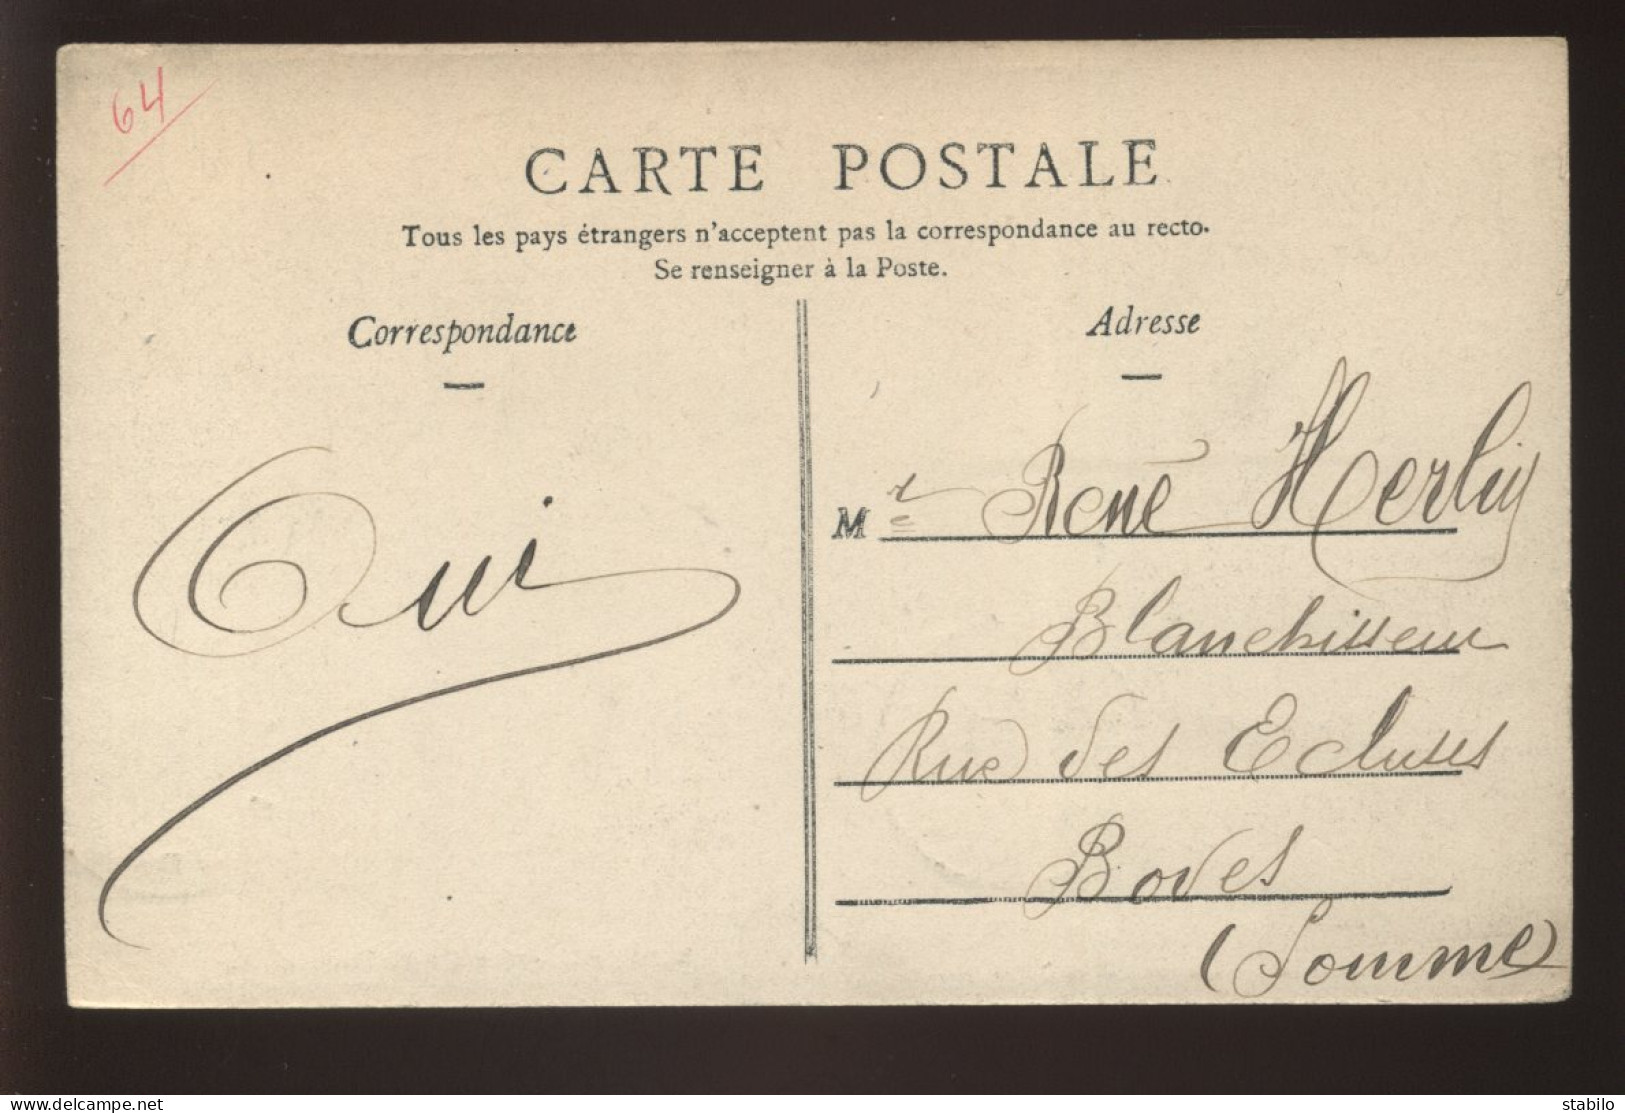 64
CARTE POSTALE
Tous les pays étrangers n'acceptent pas la correspondance au recto.
Se renseigner à la Poste.
Correspondance
Oui
Adresse
Mr René Herlin
Blanchisseur
Rue des Ecluses
Boves
(Somme)
delcampe.net
stabilo